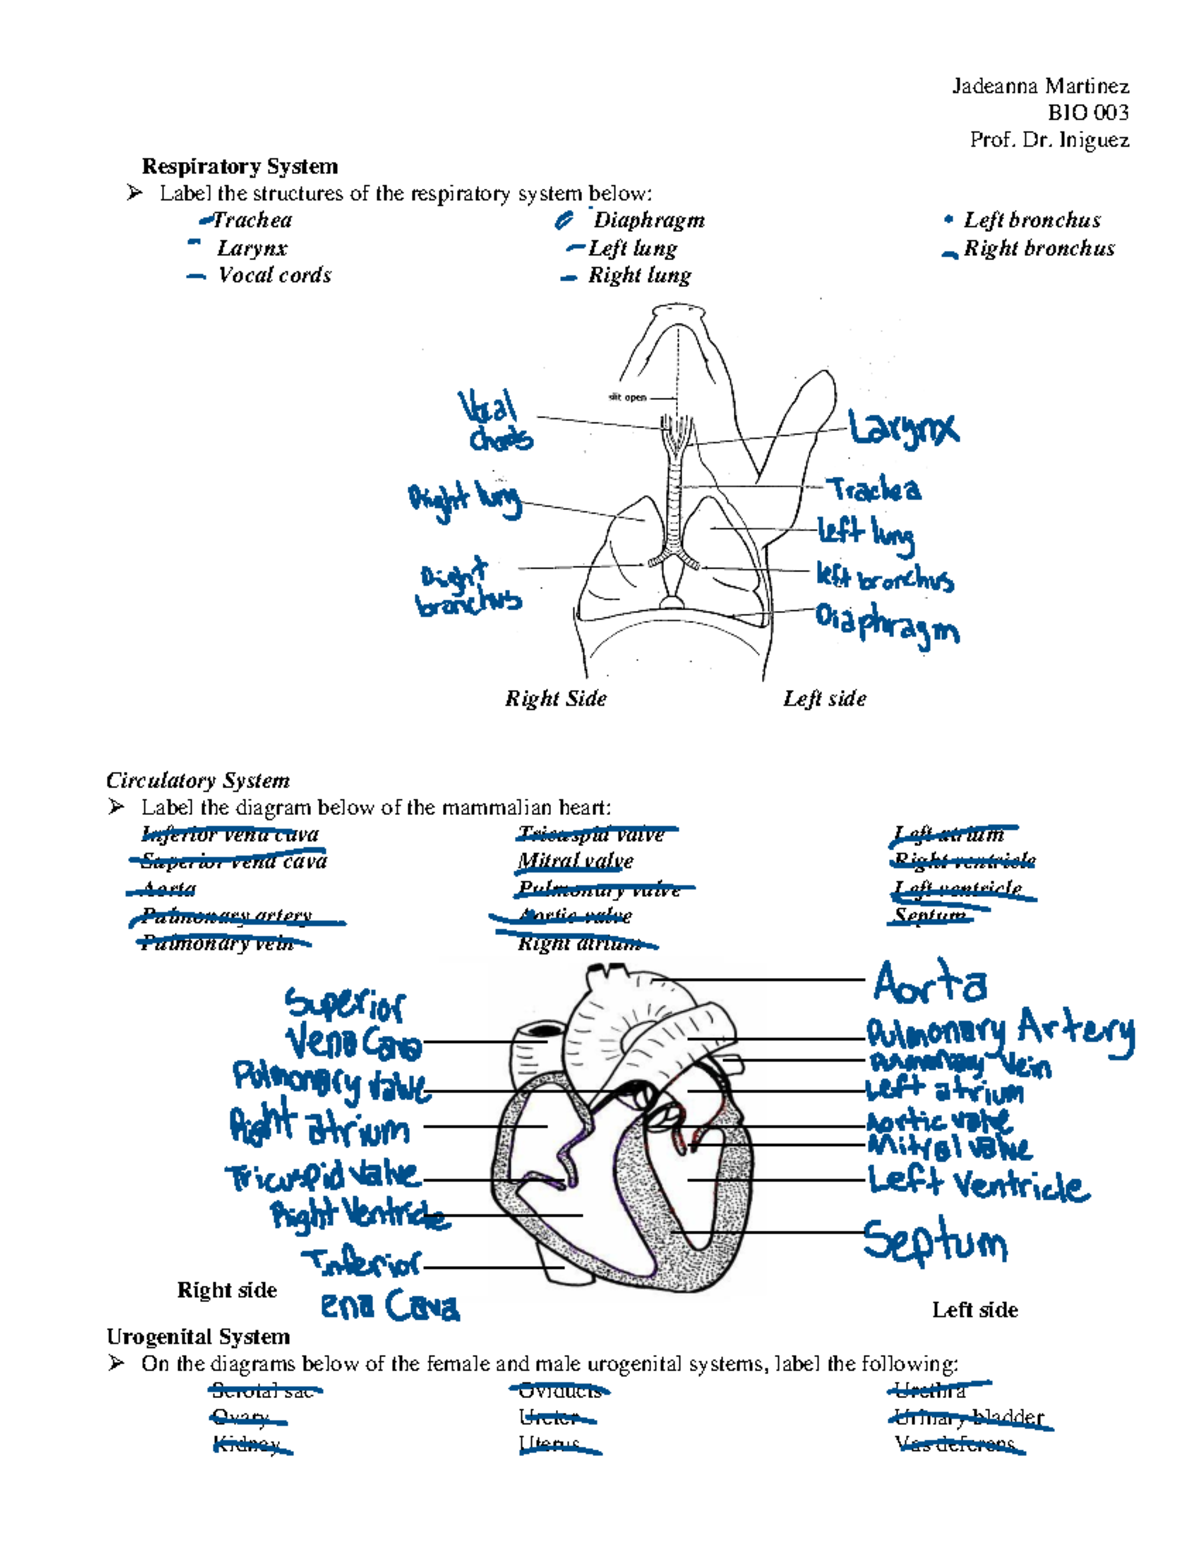 Jadeanna Martinez
BIO 003
Prof. Dr. Iniguez
Respiratory System
➢ Label the structures of the respiratory system below:
Trachea Diaphragm • Left bronchus
Larynx Left lung Right bronchus
Vocal cords Right lung
slit open
Vocal
chords
Larynx
Right lung
Trachea
Left lung
Right
bronchus
left bronchus
Diaphragm
Right Side Left side
Circulatory System
➢ Label the diagram below of the mammalian heart:
Inferior vena cava Tricuspid valve Left atrium
Superior vena cava Mitral valve Right ventricle
Aorta Pulmonary valve Left ventricle
Pulmonary artery Aortic valve Septum
Pulmonary vein Right atrium
Aorta
Superior
Vena Cava
Pulmonary Artery
Pulmonary Vein
Pulmonary valve
Left atrium
Right atrium
Aortic valve
Mitral valve
Tricuspid valve
Left Ventricle
Right Ventricle
Septum
Inferior
ena Cava
Right side
Left side
Urogenital System
➢ On the diagrams below of the female and male urogenital systems, label the following:
Scrotal sac Oviducts Urethra
Ovary Ureter Urinary bladder
Kidney Uterus Vas deferens